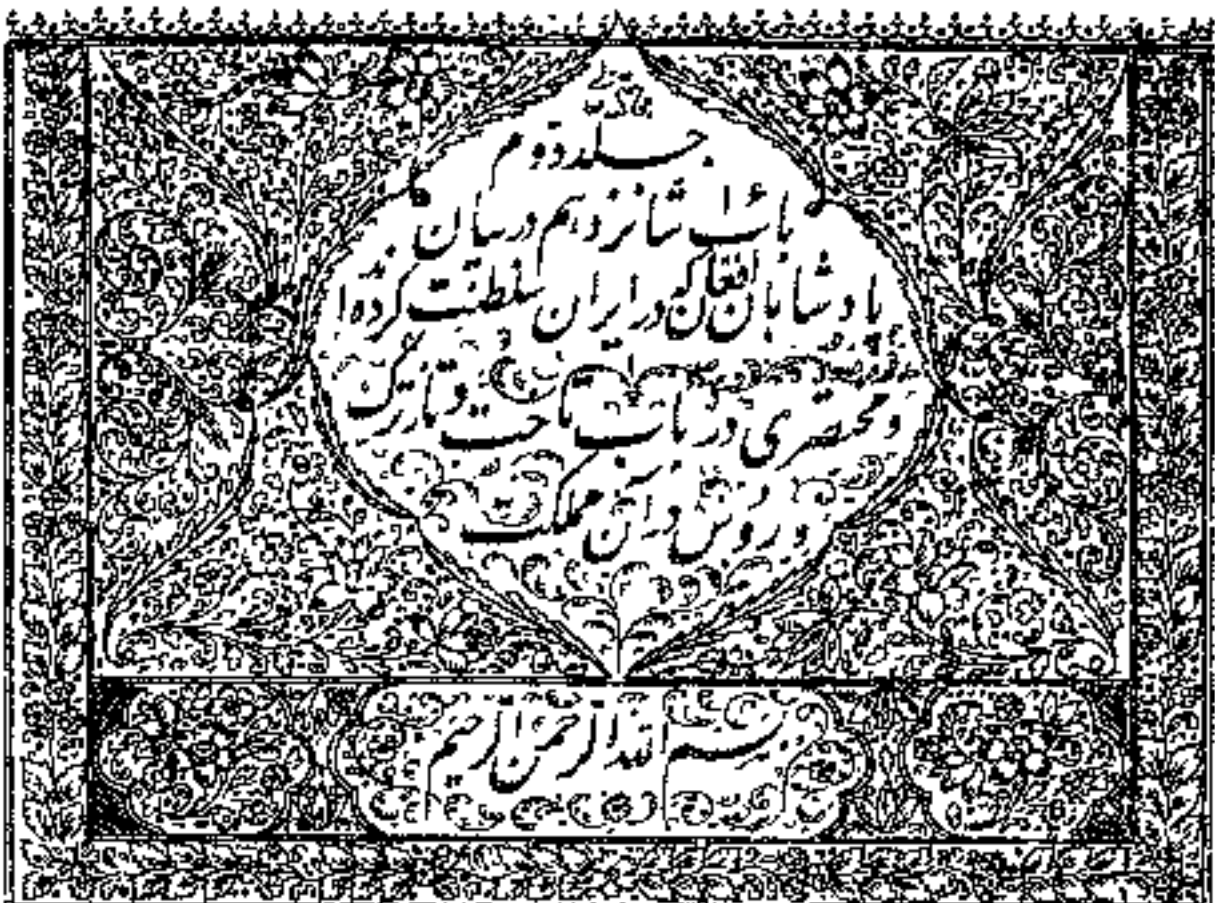 جلد دوم
باب ۱۶ شانزدهم در بیان
پادشاهان افغان که در ایران سلطنت کرده اند
و مختصری در باب فتاحت و تمارزگن
و روش در آن مملکت
بسم الله الرحمن الرحیم